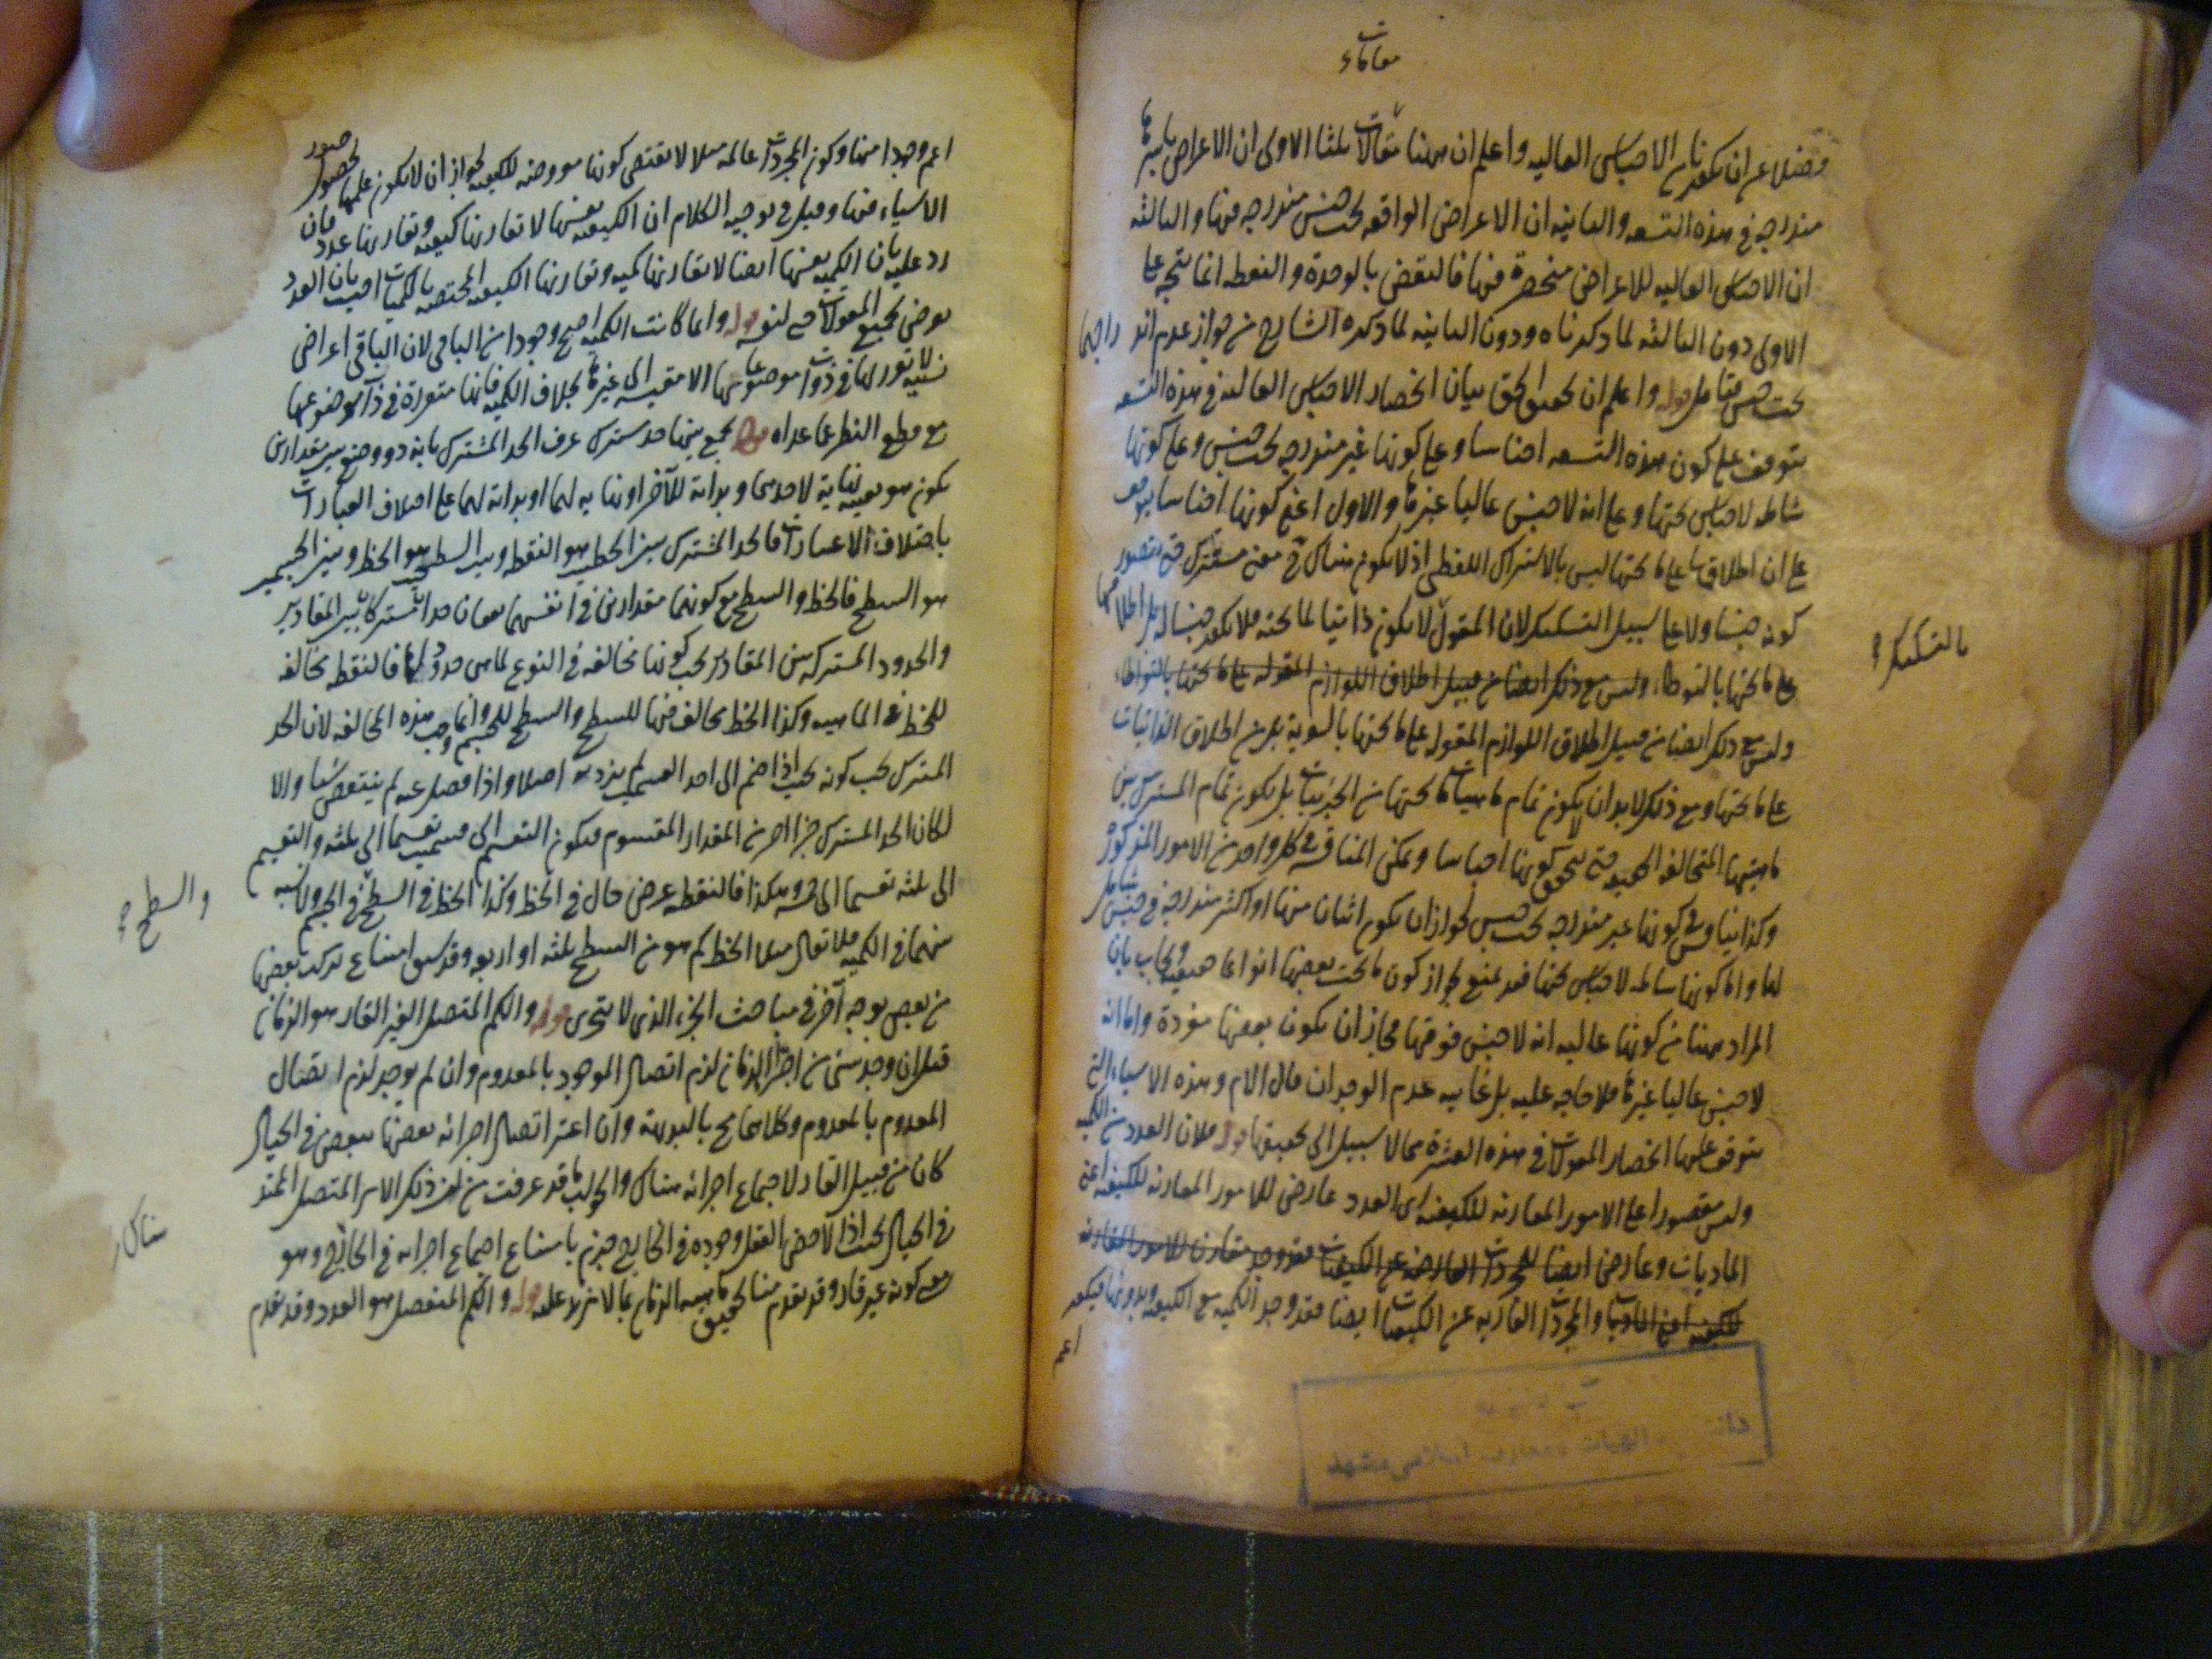 فضلا عن ان يكون من الاجناس العاليه واعلم ان ههنا مقالات ثلثا الاولى ان الاعراض باسرها
مندرجه فى هذه التسعه والثانيه ان الاعراض الواقعه تحت جنس مندرجه فيها والثالثه
ان الاجناس العاليه للاعراض منحصرة فيها فالنقض بالوحدة والنقطه انما يتجه على
الاولى دون الثالثه لما ذكرناه ودون الثانيه لما ذكره الشارح من جواز عدم اندراجهما
تحت جنس فتامل قوله واعلم ان تحقيق الحق بيان انحصار الاجناس العاليه فى هذه التسعه
يتوقف على كون هذه التسعه اجناسا وعلى كونها غير مندرجه تحت جنس وعلى كونها
شامله لاجناس تحتها وعلى انه لا جنس عاليا غيرها والاول اعنى كونها اجناسا يتوقف
على ان اطلاقها على ما تحتها ليس بالاشتراك اللفظى اذ لا يكون هناك معنى مشترك حتى يتصور
كونه جنسا ولا على سبيل التشكيك لان المقول لا يكون ذاتيا لما تحته فلا يكون جنسا له بل اطلاقها
بالتشكيك
على ما تحتها بالتواطؤ وليس مع ذلك ايضا من قبيل اطلاق اللوازم المقوله على ما تحتها بالتواطؤ
وليس مع ذلك ايضا من قبيل اطلاق اللوازم المقوله على ما تحتها بالسوية بل من اطلاق الذاتيات
على ما تحتها ومع ذلك لابد ان لا يكون تمام ماهيات ما تحتها من الجزئيات بل يكون تمام المشترك بين
ماهيتها المتخالفه الحقيقه حتى يتحقق كونها اجناسا ويمكن المناقشة فى كل واحد من الامور المذكورة
وكذا يناقش فى كونها غير مندرجه تحت جنس لجواز ان يكون اثنان منها او اكثر مندرجه فى جنس شامل
لها واما كونها شامله لاجناس تحتها فقد يمنع لجواز كون ما تحت بعضها انواعا حقيقيه ويجاب بان
المراد ههنا من كونها عاليه انه لا جنس فوقها فجاز ان يكون بعضها مفردة واما انه
لا جنس عاليا غيرها فلا حاجه عليه بل غايته عدم الوجدان قال الامام وهذه الاشياء التى
يتوقف عليها انحصار المقولات فى هذه العشرة مما لا سبيل الى تحقيقها قوله فلان العدد من الكميه
وليس مقصورا على الامور المقارنه للكيفيه اى العدد عارض للامور المقارنه للكيفيه اعنى
الماديات وعارض ايضا للمجردات العارضه عن الكيفيات فقد وجد مقارنا للامور المقارنه
للكيفيه اعنى الماديات والمجردات العاريه عن الكيفيات ايضا فقد وجد الكميه مع الكيفيه وبدونها فيكون
اعم
اعم وجودا منها وكون المجردات عالمه مثلا لا يقتضى كونها معروضه للكيفيه لجواز ان لا يكون علمها بحصول صور
الاشياء فيها وقيل فى توجيه الكلام ان الكيفيه بعينها لا تقارنها كيفيه وتقارنها عدد فان
رد عليه بان الكميه بعينها ايضا لا تقارنها كميه وتقارنها الكيفيه المختصه بالكميات اجيب بان العدد
يعرض لجميع المقولات حتى لنفسه قوله وانما كانت الكميه اصح وجودا من الباقى لان الباقى اعراض
نسبيه لا تقرر لها فى ذوات موضوعاتها الا مقيسه الى غيرها بخلاف الكميه فانها متقررة فى ذات موضوعها
مع قطع النظر عما عداه قوله يجمع بينهما حد مشترك عرف الحد المشترك بانه ذو وضع بين مقدارين
يكون هو بعينه نهاية لاحدهما وبداية للآخر او نهايه لهما او بداية لهما على اختلاف العبارات
باختلاف الاعتبارات فالحد المشترك بين الخطين هو النقطه وبين السطحين هو الخط وبين الجسمين
هو السطح فالخط والسطح مع كونهما مقدارين فى انفسهما يقعان حدا مشتركا بين المقادير
والحدود المشتركه بين المقادير يجب كونها مخالفه فى النوع لما هى حدود لها فالنقطه مخالفه
للخط فى الماهيه وكذا الخط مخالف فيها للسطح والسطح للجسم وانما وجب هذه المخالفه لان الحد
المشترك يجب كونه بحيث اذا ضم الى احد القسمين لم يزد به اصلا واذا فصل عنه لم ينتقص شيئا والا
لكان الحد المشترك جزأ اخر من المقدار المقسوم فيكون التقسيم الى قسمين تقسيما الى ثلثه والتقسيم
الى ثلثه تقسيما الى خمسه وهكذا فالنقطه عرض حال فى الخط وكذا الخط فى السطح فى الجسم ولا نسبه
والسطح
منهما فى الكميه فلا يقال مثلا الخط كم هو من السطح ثلثه او اربعه وقد سبق امتناع تركب بعضها
من بعض بوجه آخر فى مباحث الجزء الذى لا يتجزى قوله والكم المتصل الغير القار هو الزمان
قيل ان وجد شئ من اجزاء الزمان لزم اتصال الموجود بالمعدوم وان لم يوجد لزم اتصال
المعدوم بالمعدوم وكلاهما مح بالبديهة وان اعتبر اتصال اجزائه بعضها ببعض فى الخيال
كان من قبيل القار لاجتماع اجزائه هناك والجواب ما قد عرفت من ان ذلك الامر المتصل الممتد
هناك
فى الخيال بحيث اذا لاحظ العقل وجوده فى الخارج جزم بامتناع اجتماع اجزائه فى الخارج وهو
معنى كونه غير قار وقد تقدم منا تحقيق ماهيه الزمان بما لا مزيد عليه قوله والكم المنفصل هو العدد وقد تقدم